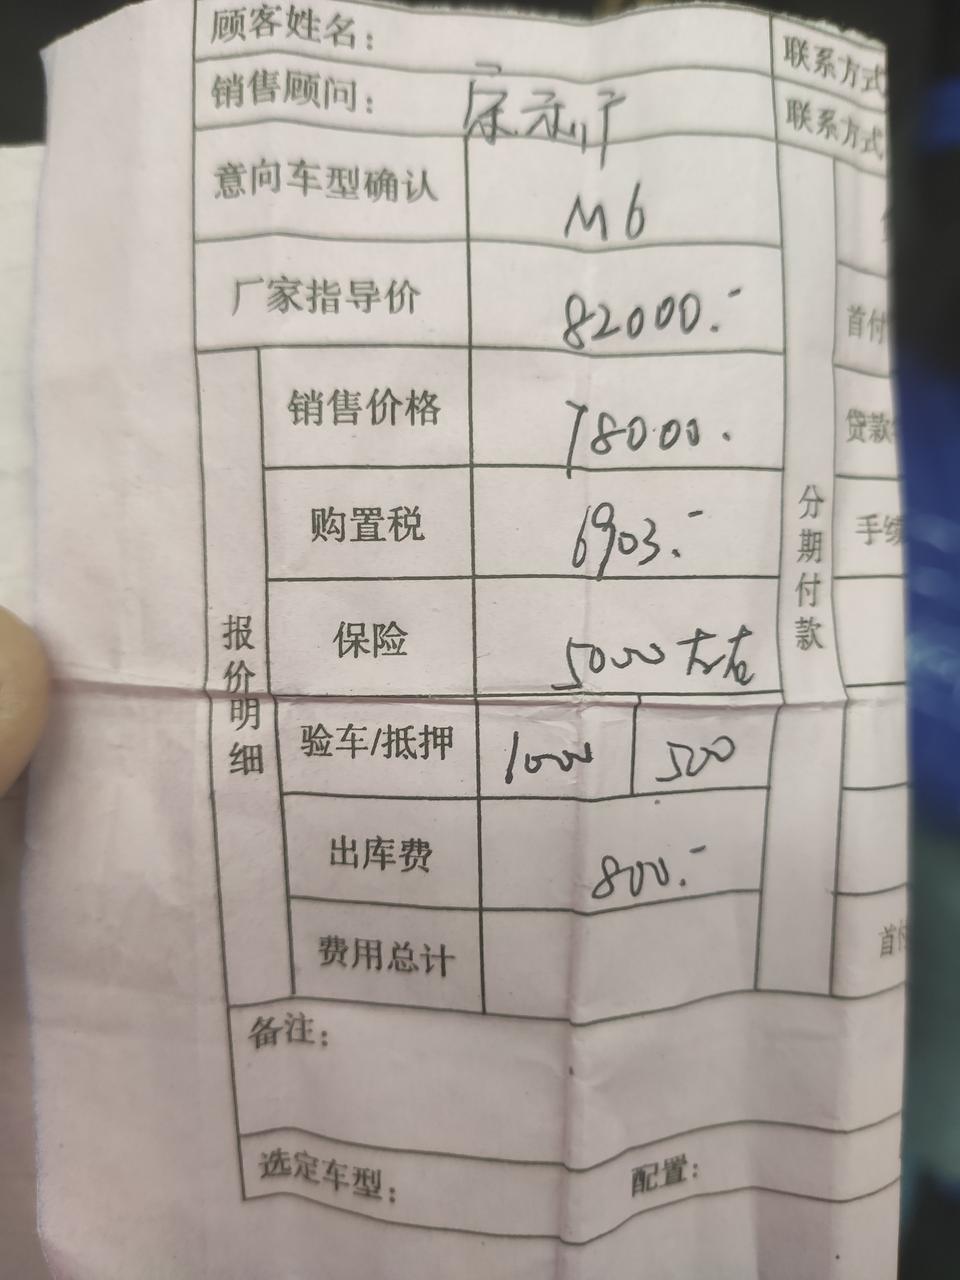 顾客姓名：
联系方式
销售顾问：
联系方式
意向车型确认 M6
厂家指导价 82000.-
首付
销售价格 78000.
贷款
购置税 6903.-
手续
分期付款
保险 5000左右
报价明细
验车/抵押 1000 500
出库费 800.-
费用总计
首付
备注：
选定车型： 配置：